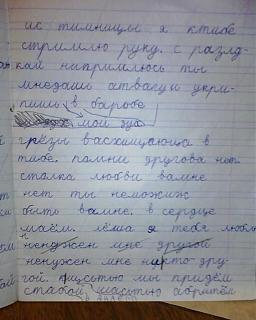 ис тимницы я ктибе
стримлю руку. с разлд-
кай нипримлюсь ты
мнедашь атвагуи укри-
пишь в баробе
мой зуд
грёзы васхищающа в
тибе. помни другова нет.
столка любви вамне
нет ты неможиж
быть вамне. в сердце
маём. лёша я тебя люблю
ненужен мне другой
ненужен мне никто дру-
гой. щистью мы придём
с табой щастью абритём